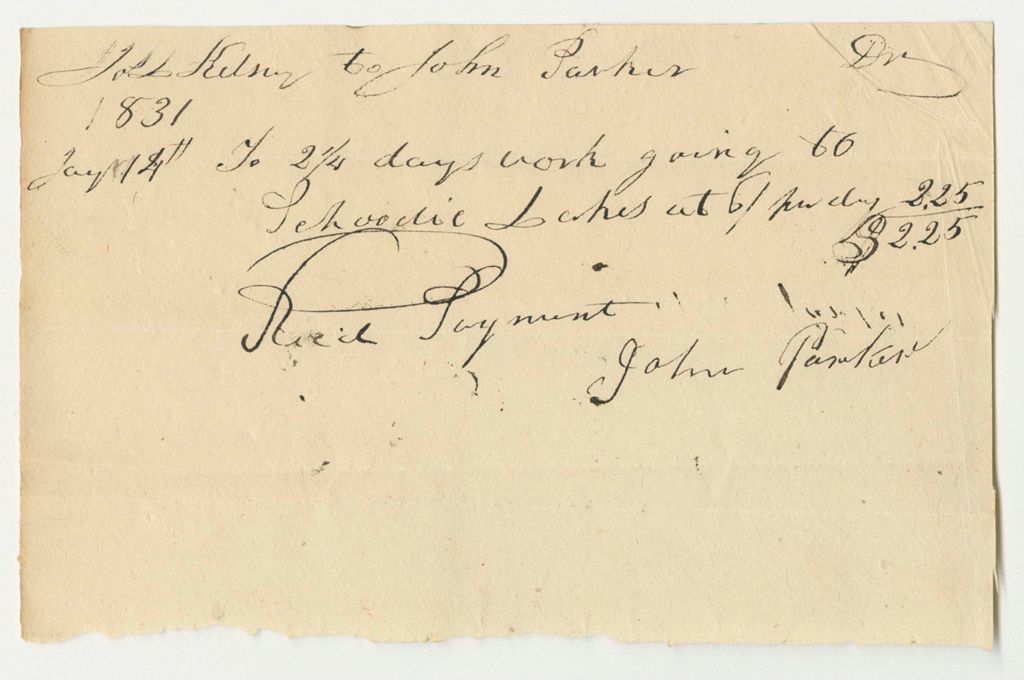 Kelsey to John Parker Dr
1831
14th To 2 1/4 days work going to
Schoodic Lakes at 6/ per day 2.25
$2.25
Rec'd Payment
John Parker